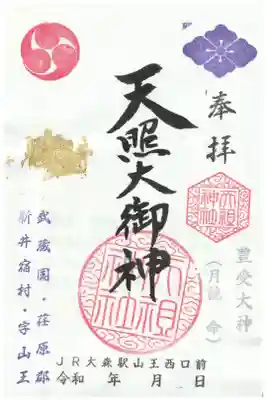 奉拝
天照大御神
豊受大神
(月読 命)
天祖神社
天祖神社
武蔵國・荏原郡
新井宿村・字山王
JR大森駅山王西口前
令和 年 月 日